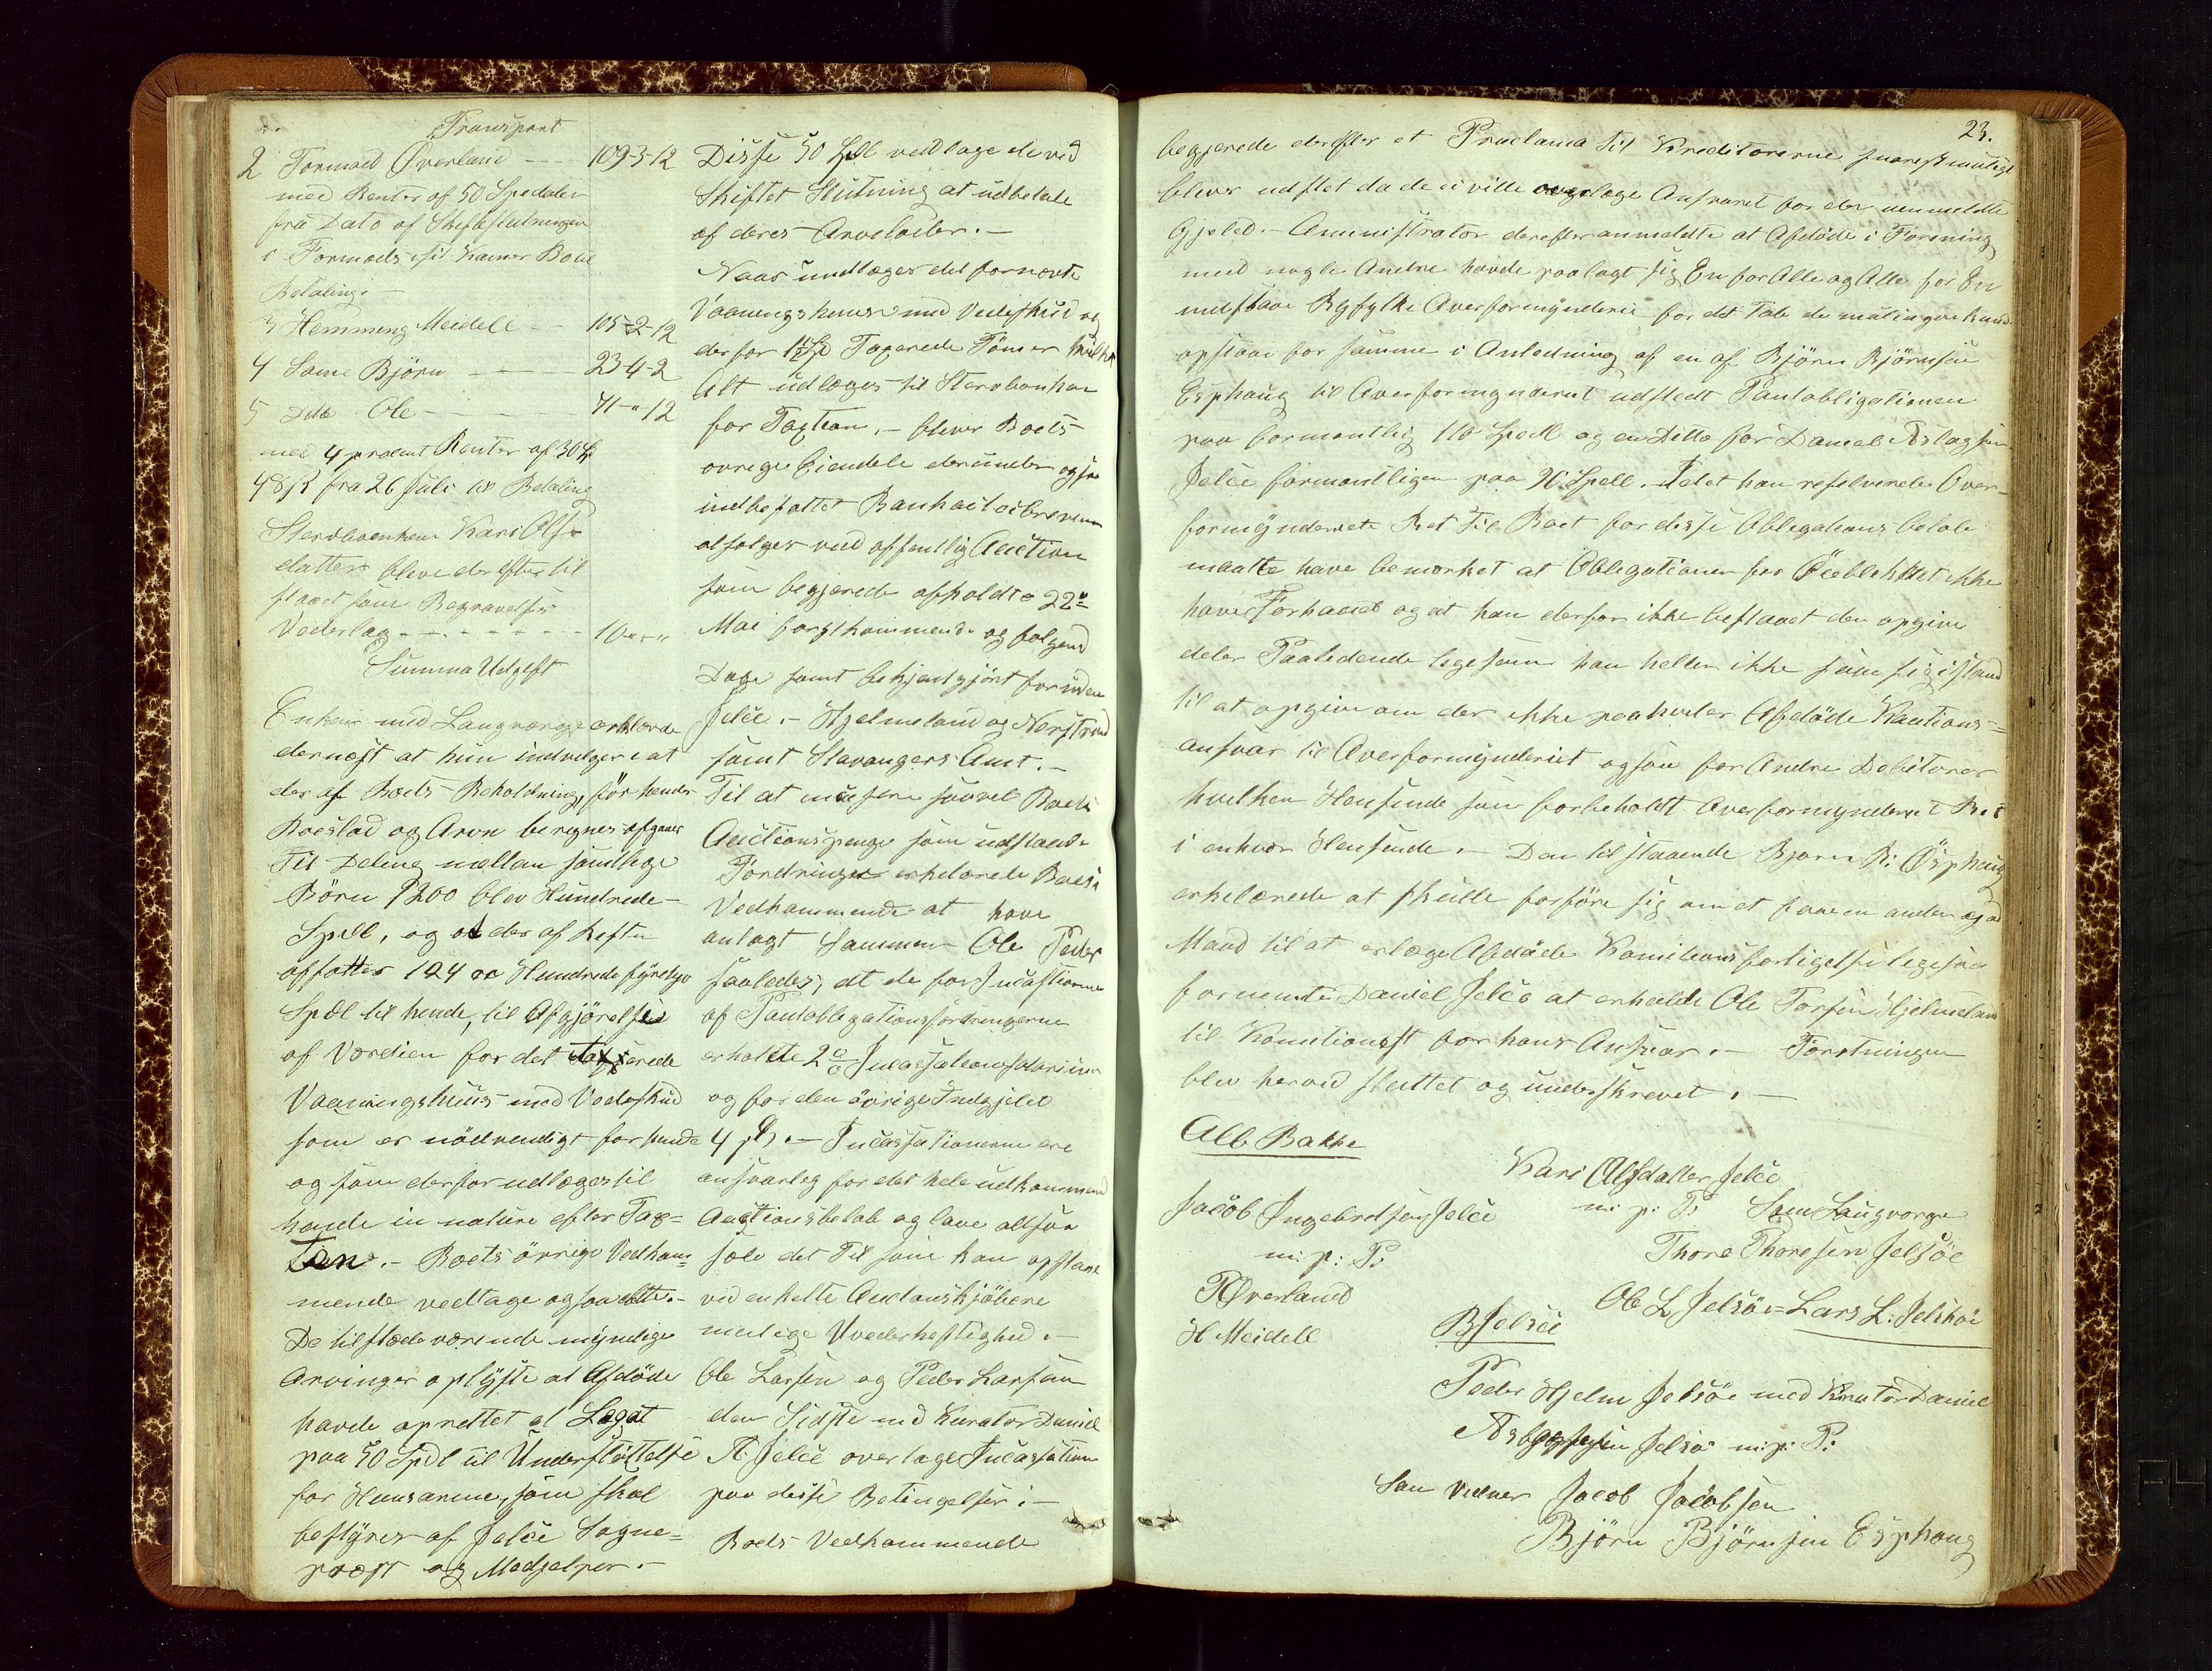 Transport
2 Tormod Øverland - - - 109-3-12
med Renter af 50 Spedaler
fra Dato af Skifteslutningen
i Tormods til
Betaling. -
3 Hemming Meidell - - 105-2-12
4 Same Björn - - - 23-4-2
5 Ditto Ole - - - 71-"-12
med 4 procent Renter af
48 β fra 26 Juli til Betaling
Stervboenken Kari Olfs
datter bleve der efter til
staaet som Begravelses
Vederlag - - - - - - - 10-"-"
Summa Udgift
Enken med Laugværge erklærede
dernæst at hun indvilger i at
der af Boets Beholdning, för hendes
Boeslod og Arve beregnes afgaaer
Til Deling mellan samtlige
Börn 1200 blev Hundrede
Spdl, og at der af
affattes 124 Hundrede
Spdl til hende, til Afgjörelse
af Værdien for det taxerede
Vaaningshuus med Vedeskud
som er nödvendigt for hende
og som derfor udlæges til
hende in nature efter Tax=
tion. - Boets övrige Vedkom=
mende vedtage ogsaa dette. -
De tilstædeværende myndige
Arvinger oplyste at Afdöde
havde oprettet et Legat
paa 50 Spdl til Understöttelse
for Huusarme, som skal
bestyres af Jelse Sogne=
præst og Medhjelper. -
Disse 50 Spdl vedtage de ved
Skiftet Slutning at udbetale
af deres Arvelodder. -
Naar undtages det fornevnte
Vaaningshuus med Vedeskud og
derfor Taxerede Tömer hvilket
Alt udlæges til Stervboenken
for Taxtion, - blever Boets
ovrige Eiendele derunder ogsaa
indbefattet
at sælges ved offentlig Auction
som begjæredes afholdte 22de
Mai forstkommende og følgend
Dage samt bekjentgjört foruden
Jelse. - Hjelmeland og Nerstrand
samt Stavangers Amt. -
Til at incasere saavel Boets
Auctionspenge som udstaaende
Fordringer erkelærede Boets
Vedkommende at have
antagt Sammen Ole Peder
saaledes, at de for Incastionen
af Pantobligationsfordringerne
erholdte 2 % Incassationsalarium
og for den övrige Indgjeld
4 β. - Incassationerne ere
ansvarleg for det hele udkommend
Auctionsbelob og lave altsaa
sæle det Til som kan opstaae
ved enkelte Auctions Kjöbere
mulige Uvederheftighed. -
Ole Larsen og Peder Larsen
den Sidste med Kurator Daniel
A. Jelse overtage Incassation
paa disse Betingelser: -
Boets Vedkommende
23.
begjærede derefter et Proclama til Kreditorerne snarest muligt
blever udstet da de ei ville overtage Ansvaret for den uanmeldte
Gjeld. - Aministrator derefter anmeldte at Afdöde i Forening
med nogle Andre havde paalagt sig En for Alle og Alle for En
indstaae Ryfylke Overformynderie for det Tab de muligvis kunde
opstaae for samme i Anledning af en af Björn Björnsen
Esphaug til Overformynderiet udstedt Pantobligationen
paa formentlig 110 Spdl og en Ditto for Daniel Aslagsen
Jelse formentligen paa 90 Spdl. Idet han reserverede Over=
formynderiets Ret til Boet for disse Obligations belöb
maatte have bemærket at Obligationer for Öieblikket ikke
haves Forhaand og at han derfor ikke bestaaet den opgive
deler Paaledende legesom han heller ikke saae sig istand
til at opgive om der ikke paahviler Afdöde Kautions=
ansvar til Overformynderiet ogsaa for Andre Debitorer
hvilken Henseende som forbeholdt Overformynderiet Ret
i enhver Henseende. - Den tilstaaende Bjorn B: Esphaug
erkelærede at skulle forföre sig om at faae en anden god
Mand til at erlæge Afdöde Kamitions forligelse legesaa
fornemte Daniel Jelse at erholde Ole Torsen Hjelmeland
til Kautionist for hans Ansvar. - Forretningen
blev herved sluttet og underskrevet. -
Alb. Bakke
Kari Olfsdatter Jelse
Jacob Ingebretsen Jelse m: p: P: Som Laugværge
m: p: P: Thore Thoresen Jelsöe
TØverland
Ole L Jelsöe = Lars L: Jelsöe
H Meidell BJelsöe
Peder Hjelm Jelsöe med Kurator Daniel
Aslagsen Jelsöe m: p: P:
Som Vidner Jacob Jacobsen
Björn Björnsen Esphaug